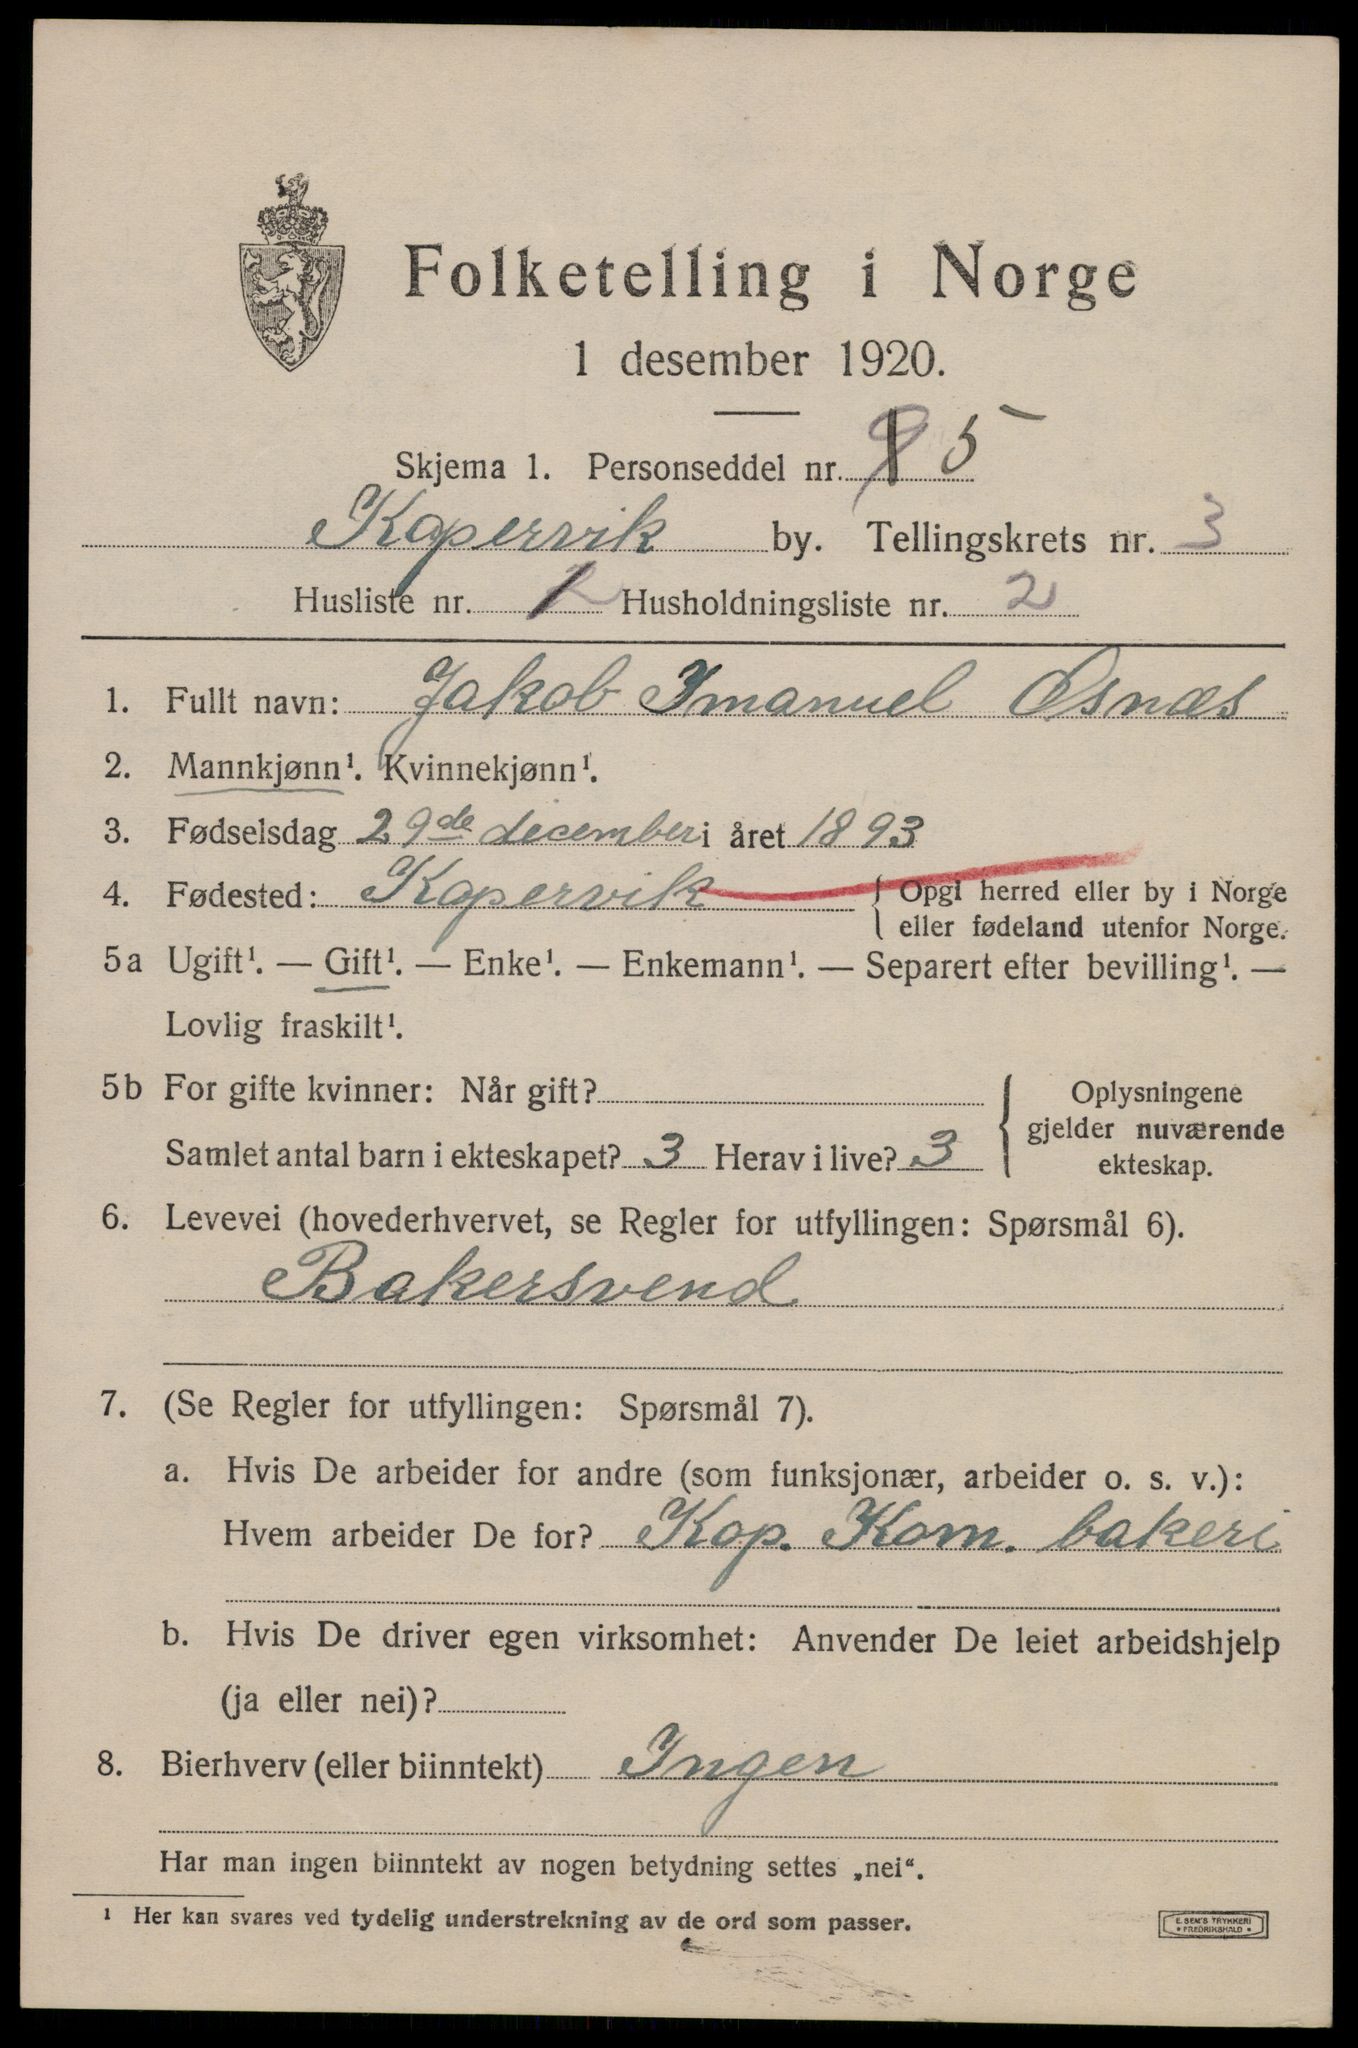 Folketelling i Norge
1 desember 1920.
Skjema 1. Personseddel nr. 5
Kopervik by. Tellingskrets nr. 3
Husliste nr. Husholdningsliste nr. 2
1. Fullt navn: Jakob Imanuel Osnæs
2. Mannkjønn¹. Kvinnekjønn¹.
3. Fødselsdag 29de december i året 1893
4. Fødested: Kopervik { Opgi herred eller by i Norge
eller fødeland utenfor Norge.
5a Ugift¹. — Gift¹. — Enke¹. — Enkemann¹. — Separert efter bevilling¹. —
Lovlig fraskilt¹.
5b For gifte kvinner: Når gift?
Samlet antal barn i ekteskapet? 3 Herav i live? 3
Oplysningene
gjelder nuværende
ekteskap.
6. Levevei (hovederhvervet, se Regler for utfyllingen: Spørsmål 6).
Bakersvend
7. (Se Regler for utfyllingen: Spørsmål 7).
a. Hvis De arbeider for andre (som funksjonær, arbeider o. s. v.):
Hvem arbeider De for? Kop. Kom. bakeri
b. Hvis De driver egen virksomhet: Anvender De leiet arbeidshjelp
(ja eller nei)?
8. Bierhverv (eller biinntekt) Ingen
Har man ingen biinntekt av nogen betydning settes „nei“.
¹ Her kan svares ved tydelig understrekning av de ord som passer.
E. SEM'S TRYKKERI
* FREDRIKSHALD *